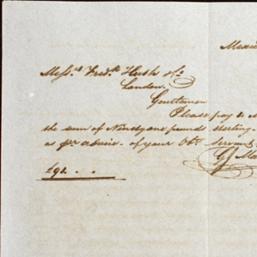 Mexic
Mess.rs Fred.k Huth & Co.
London.
Gentlemen
Please pay to M
the sum of Ninety one pounds sterling.
as p.r advice. of your Ob.t Servant
£91...